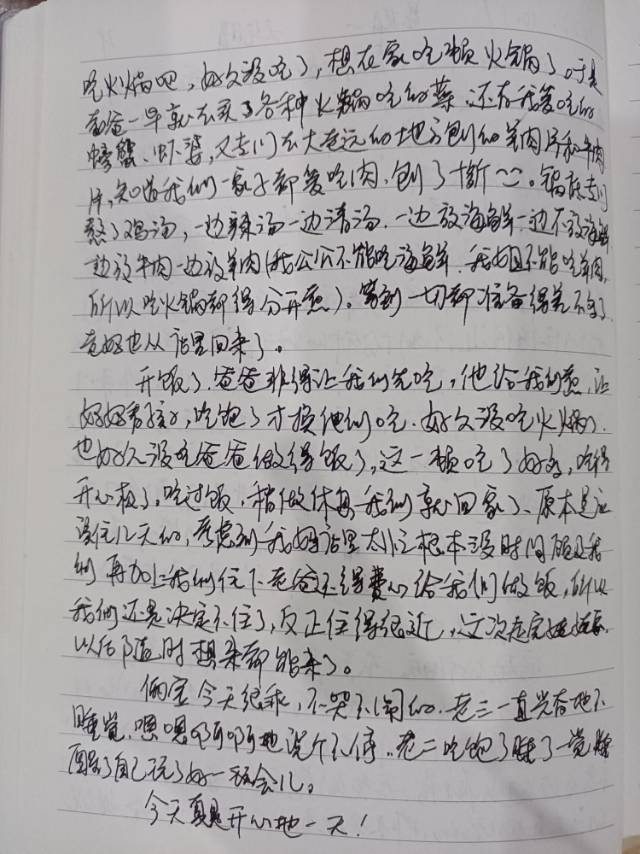 吃火锅吧,好久没吃了,想在家吃顿火锅了。于是
爸爸一早就去买了各种火锅吃的菜,还有我爱吃的
螃蟹、虾婆,又专门去大老远的地方刨的羊肉片和牛肉
片,知道我们一家子都爱吃肉,刨了十斤~~。锅底专门
熬了鸡汤,一边辣汤一边清汤,一边放海鲜一边不放海鲜
一边放牛肉一边放羊肉(我公公不能吃海鲜,我姐不能吃羊肉,
所以吃火锅都得分开煮)。等到一切都准备得差不多了
老妈也从店里回来了。
开饭了,爸爸非得让我们先吃,他给我们煮,让
妈妈看孩子,吃饱了才换他们吃。好久没吃火锅了,
也好久没吃爸爸做得饭了,这一顿吃了好多,吃得
开心极了。吃过饭,稍做休息我们就回家了、原本是应
该住几天的,考虑到我妈店里太忙根本没时间陪我
们再加上我们住下老爸还得费心给我们做饭,所以
我们还是决定不住了,反正住得很近,这次走完
以后随时想来都能来了。
俩宝今天很乖,不哭不闹的。老三一直兴奋地不
睡觉,嗯嗯啊啊地说个不停。老二吃饱了睡了一觉睡
醒了自己玩了好一会儿。
今天真是开心地一天!